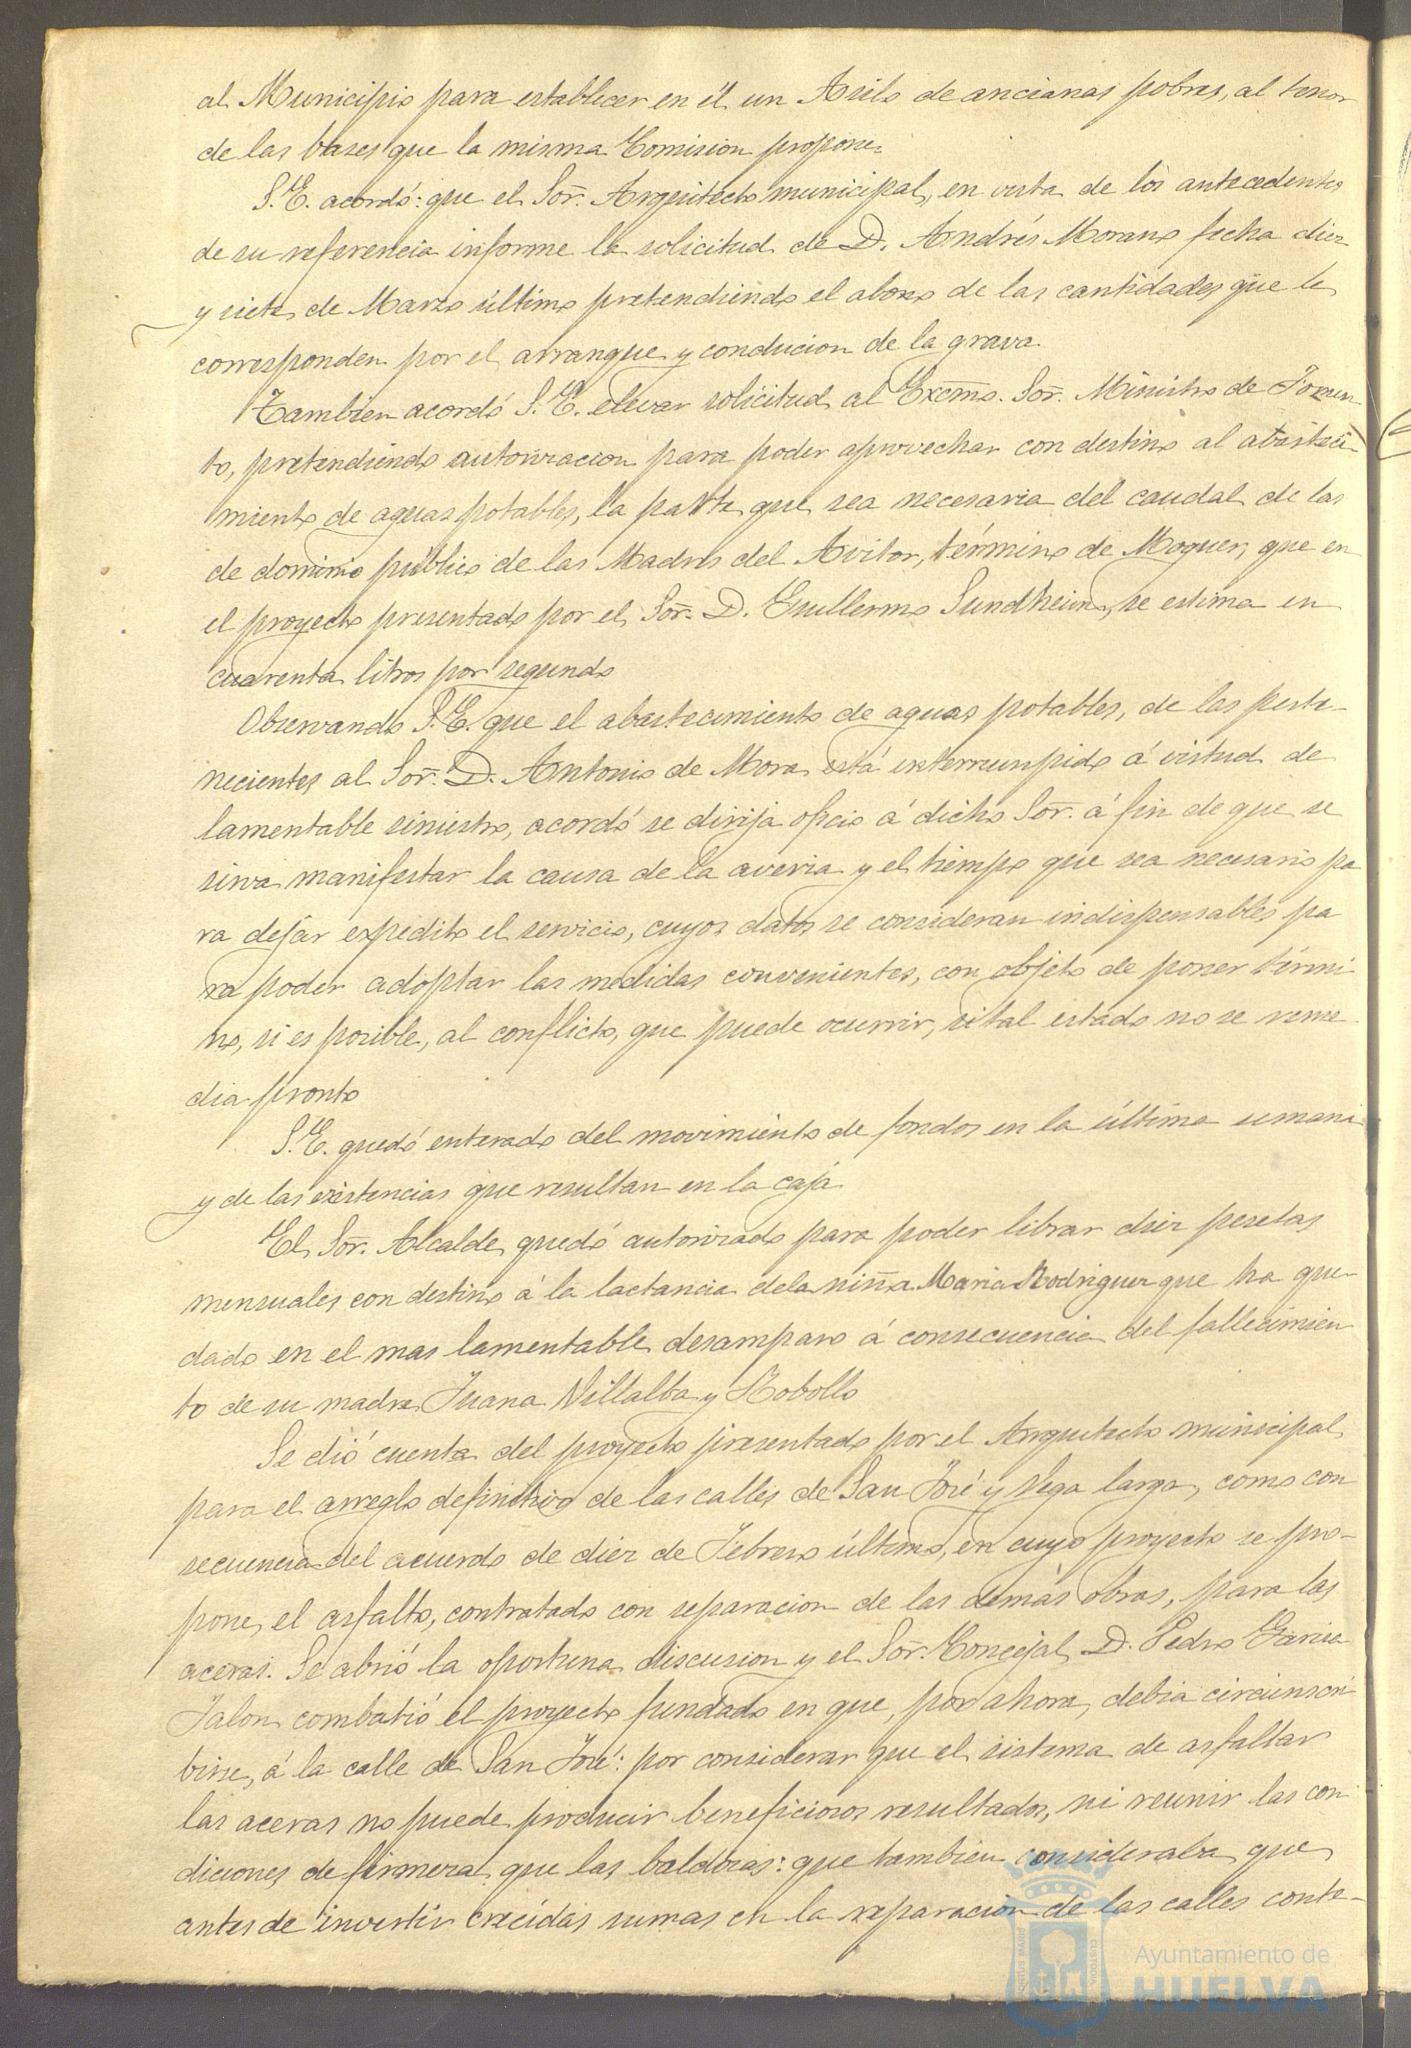 al Municipio para establecer en él un Asilo de ancianas pobres, al tenor
de las bases que la misma Comision propone.
S.E. acordó: que el Sor. Arquitecto municipal, en vista de los antecedentes
de su referencia informe la solicitud de D. Andrés Morano fecha diez
y siete de Marzo último pretendiendo el abono de las cantidades que le
corresponden por el arranque y conducion de la grava.
Tambien acordó S.E. elevar solicitud al Excmo. Sor. Ministro de Fomen
to, pretendiendo autorizacion para poder aprovechar con destino al abasteci-
miento de aguas potables, la parte que sea necesaria del caudal de las
de dominio público de las Madres del Avitor, término de Moguer, que en
el proyecto presentado por el Sor. D. Guillermo Sundheim, se estima en
cuarenta litros por segundo
Observando S.E. que el abastecimiento de aguas potables, de las perte-
necientes al Sor. D. Antonio de Mora está interrumpido á virtud de
lamentable siniestro, acordó se dirija oficio á dicho Sor. á fin de que se
sirva manifestar la causa de la averia y el tiempo que sea necesario pa
ra dejar expedito el servicio, cuyos datos se consideran indispensables pa
ra poder adoptar las medidas convenientes, con objeto de poner térmi
no, si es posible, al conflicto, que puede ocurrir, si tal estado no se reme
dia pronto
S.E. quedó enterado del movimiento de fondos en la última semana
y de las existencias que resultan en la caja.
El Sor. Alcalde quedó autorizado para poder librar diez pesetas
mensuales con destino á la lactancia dela niña Maria Rodriguez que ha que-
dado en el mas lamentable desamparo á consecuencia del fallecimien
to de su madre Juana Villalba y Robollo
Se dió cuenta del proyecto presentado por el Arquitecto municipal
para el arreglo definitivo de las calles de San José y Vega larga, como con
secuencia del acuerdo de diez de Febrero último, en cuyo proyecto se pro-
pone, el asfalto, contratado con separacion de las demás obras, para las
aceras. Se abrió la oportuna discusion y el Sor. Concejal D. Pedro Garcia
Jalon combatió el proyecto fundado en que, por ahora, debia circunscri
birse, á la calle de San José: por considerar que el sistema de asfaltar
las aceras no puede producir beneficiosos resultados, ni reunir las con
diciones de firmeza que las baldosas: que tambien consideraba que
antes de invertir crecidas sumas en la reparacion de las calles conte-
Ayuntamiento de
HUELVA